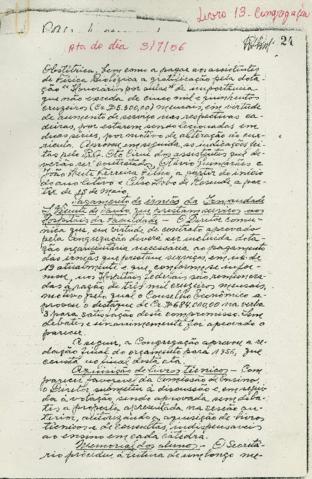 Livro 13. Congregação
Ata do dia 3/7/56
24
Obstetrica, bem como a pagar aos assistentes
de Fisica Biologica a gratificação pela dota-
ção "Honorarios por aulas" de importancia
que não exceda de cinco mil e quinhentos
cruzeiros mensais, em virtude
de aumento de serviço nas respectivas ca-
deiras, por estarem sendo lecionadas em
duas séries, por motivo de alteração do cur-
riculo. Aprova, em seguida, as indicações fei-
tas pelo dos assistentes que de-
verão ser gratificados,
João Ferreira Filho, a partir do inicio
do ano letivo e Celso de Rezende, a par-
tir de de maio.
Pagamento de irmãs da Irmandade
S. Vicente de Paulo que prestam serviços nos
Hospitais da Faculdade — O Diretor comu-
nica que, em virtude de contrato aprovado
pela Congregação deverá ser incluida dota-
ção orçamentaria necessaria ao pagamento
das irmãs que prestam serviços, em nº de
19 atualmente e que, conforme se infor-
mou, em Hospitais Federais são remunera-
das á razão de tres mil cruzeiros mensais,
motivo pelo qual o Conselho Economico a-
provou o destaque de na verba
3 para satisfação deste compromisso. Sem
debates e unanimemente foi aprovado o
parecer.
A seguir, a Congregação aprova a re-
dação final do orçamento para 1956, que
consta no final desta ata.
Aquisição de livros técnicos — Com
parecer favoravel da Comissão de Ensino,
o Diretor submeteu á discussão e, em segui-
da á votação, sendo aprovada, sem deba-
tes, a proposta apresentada na sessão an-
terior, autorizando a aquisição de livros
técnicos e de consultas, indispensaveis
ao ensino em cada catedra.
Memorial dos alunos — O Secreta-
rio procedeu á leitura de um longo me-